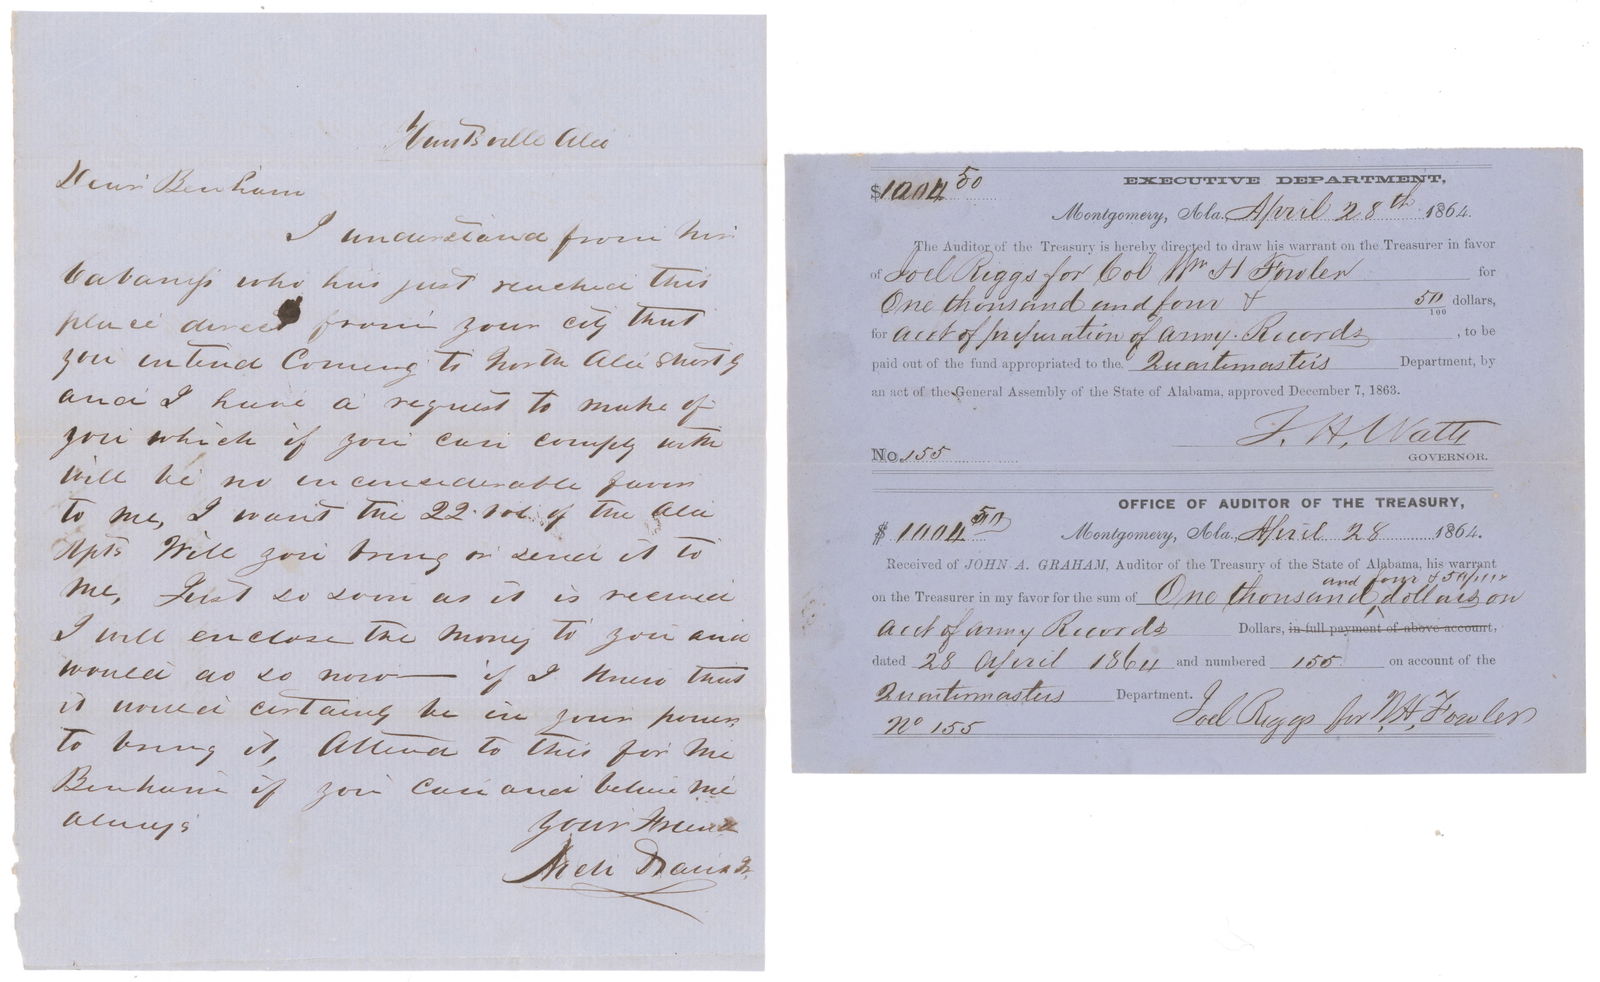 Huntsville Ala
Dear Benham
I understand from Mr
Cabaniss who has just reached this
place direct from your city that
you intend Coming to North Ala shortly
and I have a request to make of
you which if you can comply with
will be no inconsiderable favor
to me, I want the 22 vol of the Ala
Rpts Will you bring or send it to
me, Just so soon as it is received
I will enclose the money to you and
would do so now — if I knew that
it would certainly be in your power
to bring it, Attend to this for me
Benham if you can and believe me
always
your Friend
Nich Davis Jr
$1004 50
EXECUTIVE DEPARTMENT,
Montgomery, Ala. April 28th 1864.
The Auditor of the Treasury is hereby directed to draw his warrant on the Treasurer in favor
of Joel Riggs for Col Wm H Fowler for
One thousand and four & 50/100 dollars,
for acct of preparation of army Records, to be
paid out of the fund appropriated to the Quartermasters Department, by
an act of the General Assembly of the State of Alabama, approved December 7, 1863.
T. H. Watts
No. 155 GOVERNOR.
OFFICE OF AUDITOR OF THE TREASURY,
$ 1004 50 Montgomery, Ala., April 28 1864.
Received of JOHN A. GRAHAM, Auditor of the Treasury of the State of Alabama, his warrant
and four & 50/100
on the Treasurer in my favor for the sum of One thousand dollars on
acct of army Records Dollars, in full payment of above account,
dated 28 April 1864 and numbered 155 on account of the
Quartermasters Department.
No 155 Joel Riggs for W, H, Fowler